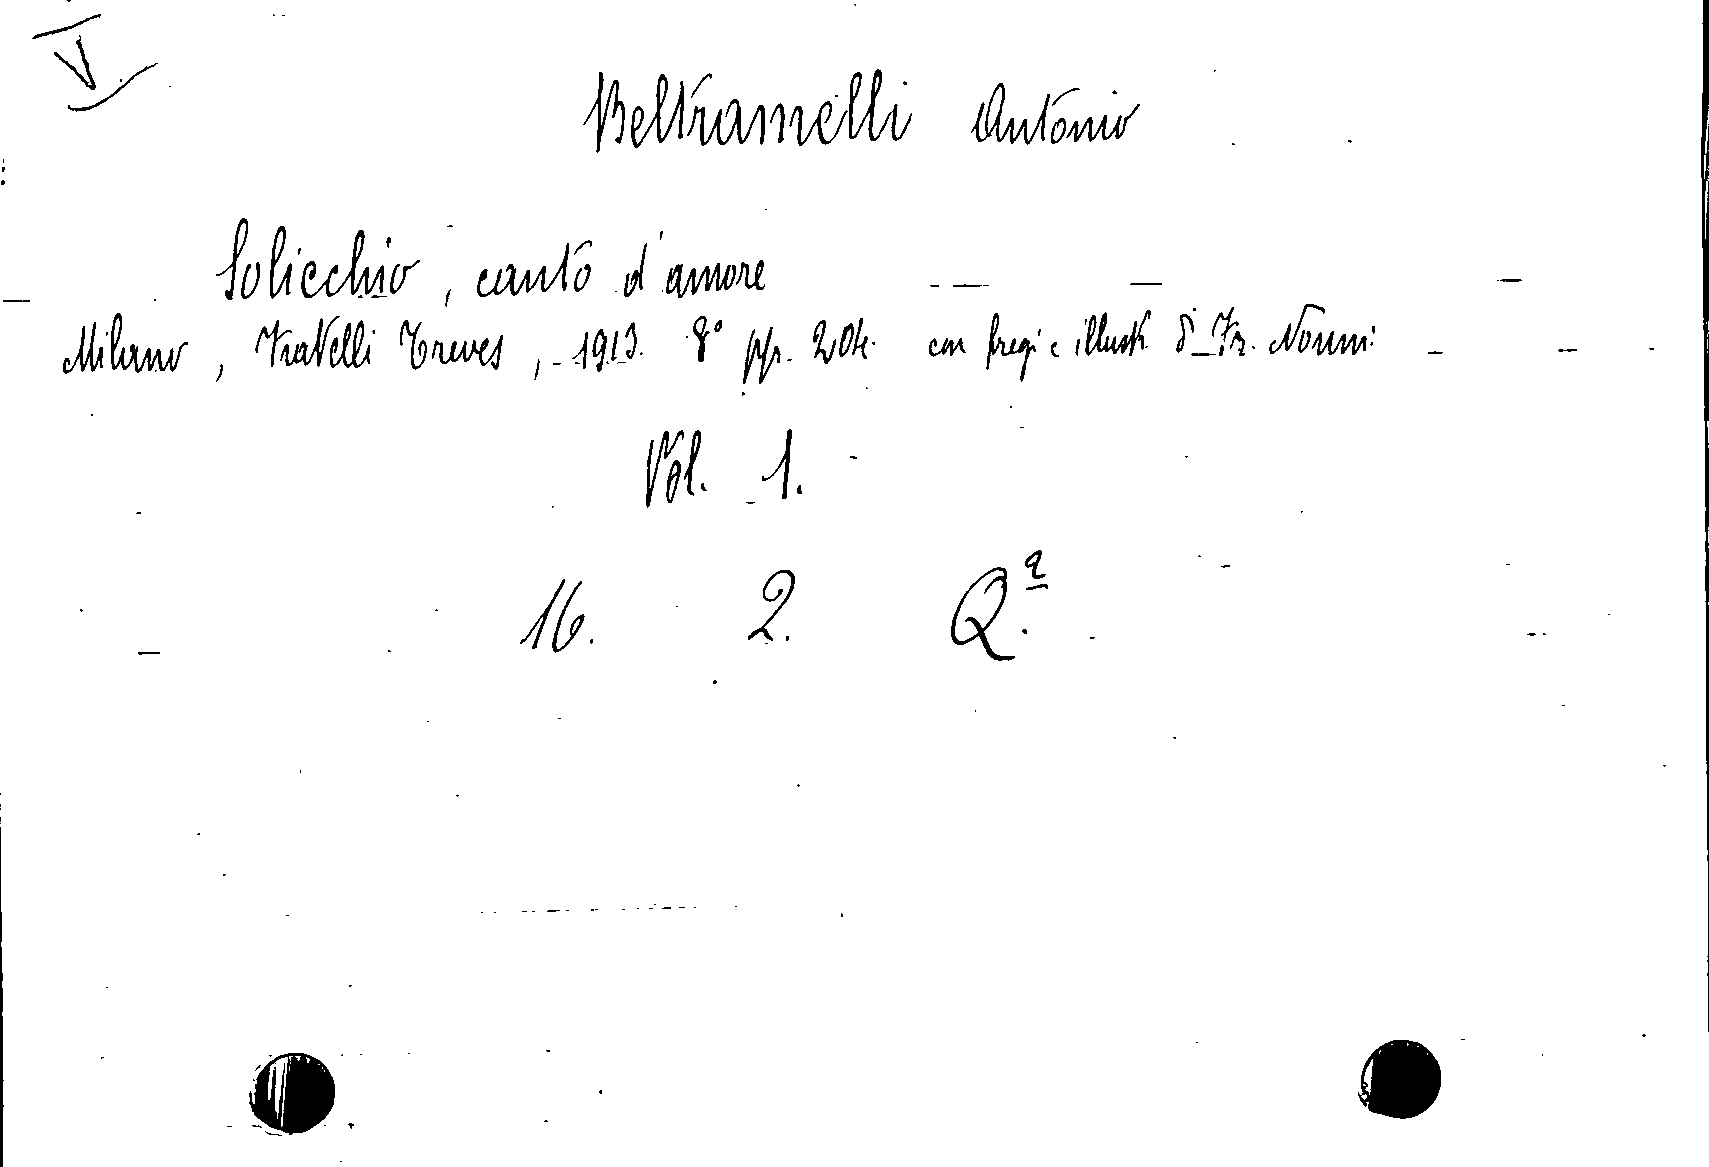 V
Beltramelli Antonio
Solicchio, canto d'amore
Milano, Fratelli Treves, 1913. 8° pp. 204. con fregi e illustr. di Fr. Nonni.
Vol. 1.
16. 2. Q.a